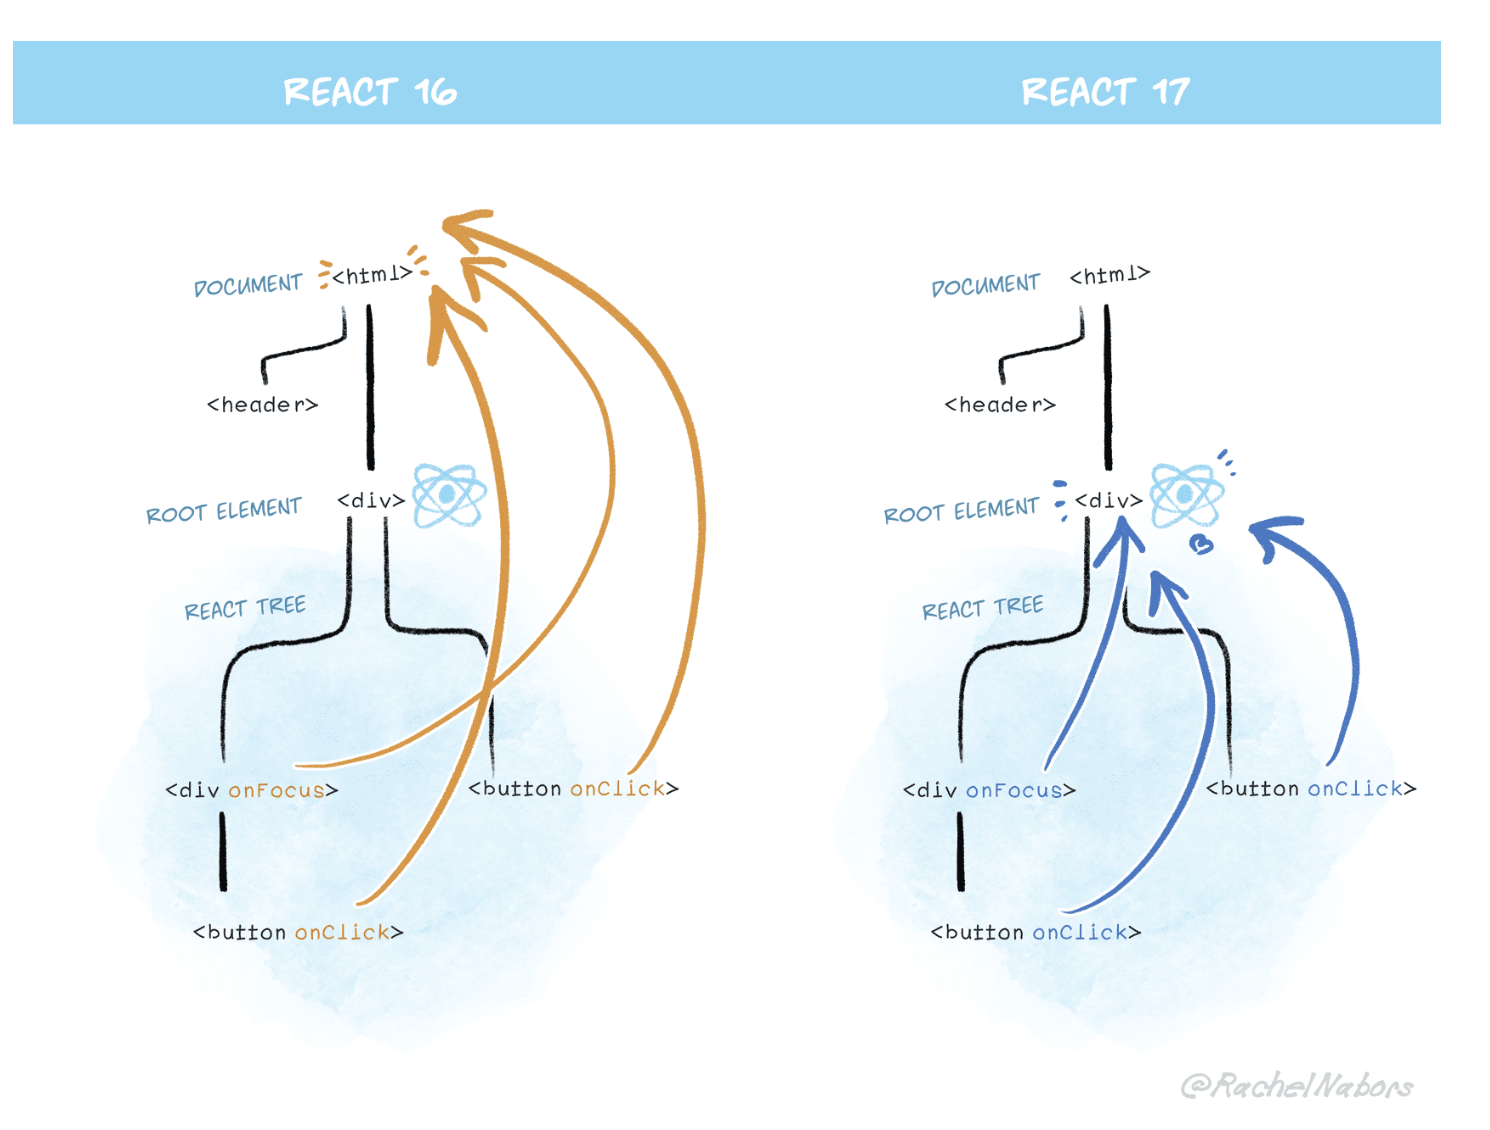 REACT 16
REACT 17
DOCUMENT <html>
<header>
ROOT ELEMENT <div>
REACT TREE
<div onFocus>
<button onClick>
<button onClick>
DOCUMENT <html>
<header>
ROOT ELEMENT <div>
REACT TREE
<div onFocus>
<button onClick>
<button onClick>
@RachelNabors